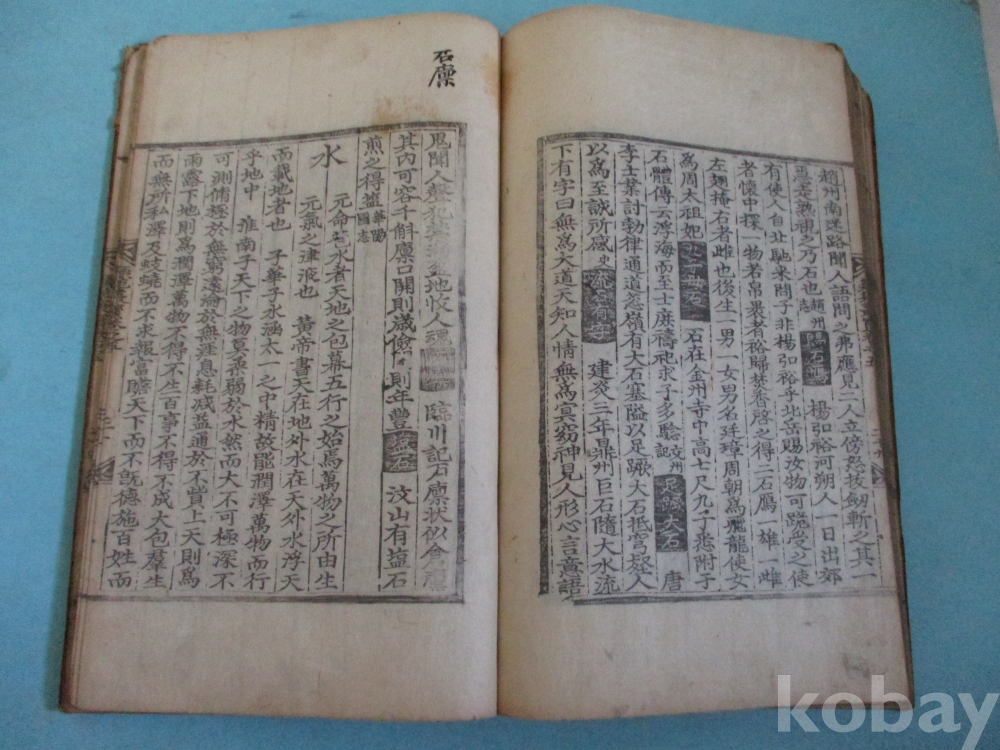 趙州南迷路聞人語問之弗應見二人立傍怒拔劒斬之其一
熟視之乃石也趙州志 楊弘裕河朔人一日出郊
有使人自北馳来問子非楊弘裕乎北岳賜汝物可跪受之使
者懷中探一物若帛裹者裕歸焚香啓之得二石鷹一雄一雌
左翅掩右者雌也後生二男一女男名廷璋周朝爲飛龍使女
爲周太祖妃 石在金州寺中高七尺九子悉附于
石體傳云浮海而至士庶禱祀求子多驗 足蹶大石 唐
李士業討勃律通道葱嶺有大石塞隘以足蹶大石抵穹疑人
以爲至誠所感史 建炎三年鼎州巨石隨大水流
下有字曰無爲大道天知人情無爲冥窈神見人形心言意語
鬼聞人聲犯 地收人魂 臨川記石廪狀似倉廪
其内可容千斛廪口開則歲儉 則年豐 鹽石 汶山有塩石
煎之得塩華陽國志
石廪
水 元命苞水者天地之包幕五行之始焉萬物之所由生
元氣之津液也 黄帝書天在地外水在天外水浮天
而載地者也 子華子水涵太一之中精故能潤澤萬物而行
乎地中 淮南子天下之物莫柔弱於水然而大不可極深不
可測脩極於無窮遠淪於無涯息耗减益通於不貲上天則爲
雨露下地則爲潤澤萬物不得不生百事不得不成大包羣生
而無所私澤及蚑蟯而不求報富贍天下而不旣德施百姓而
kobay